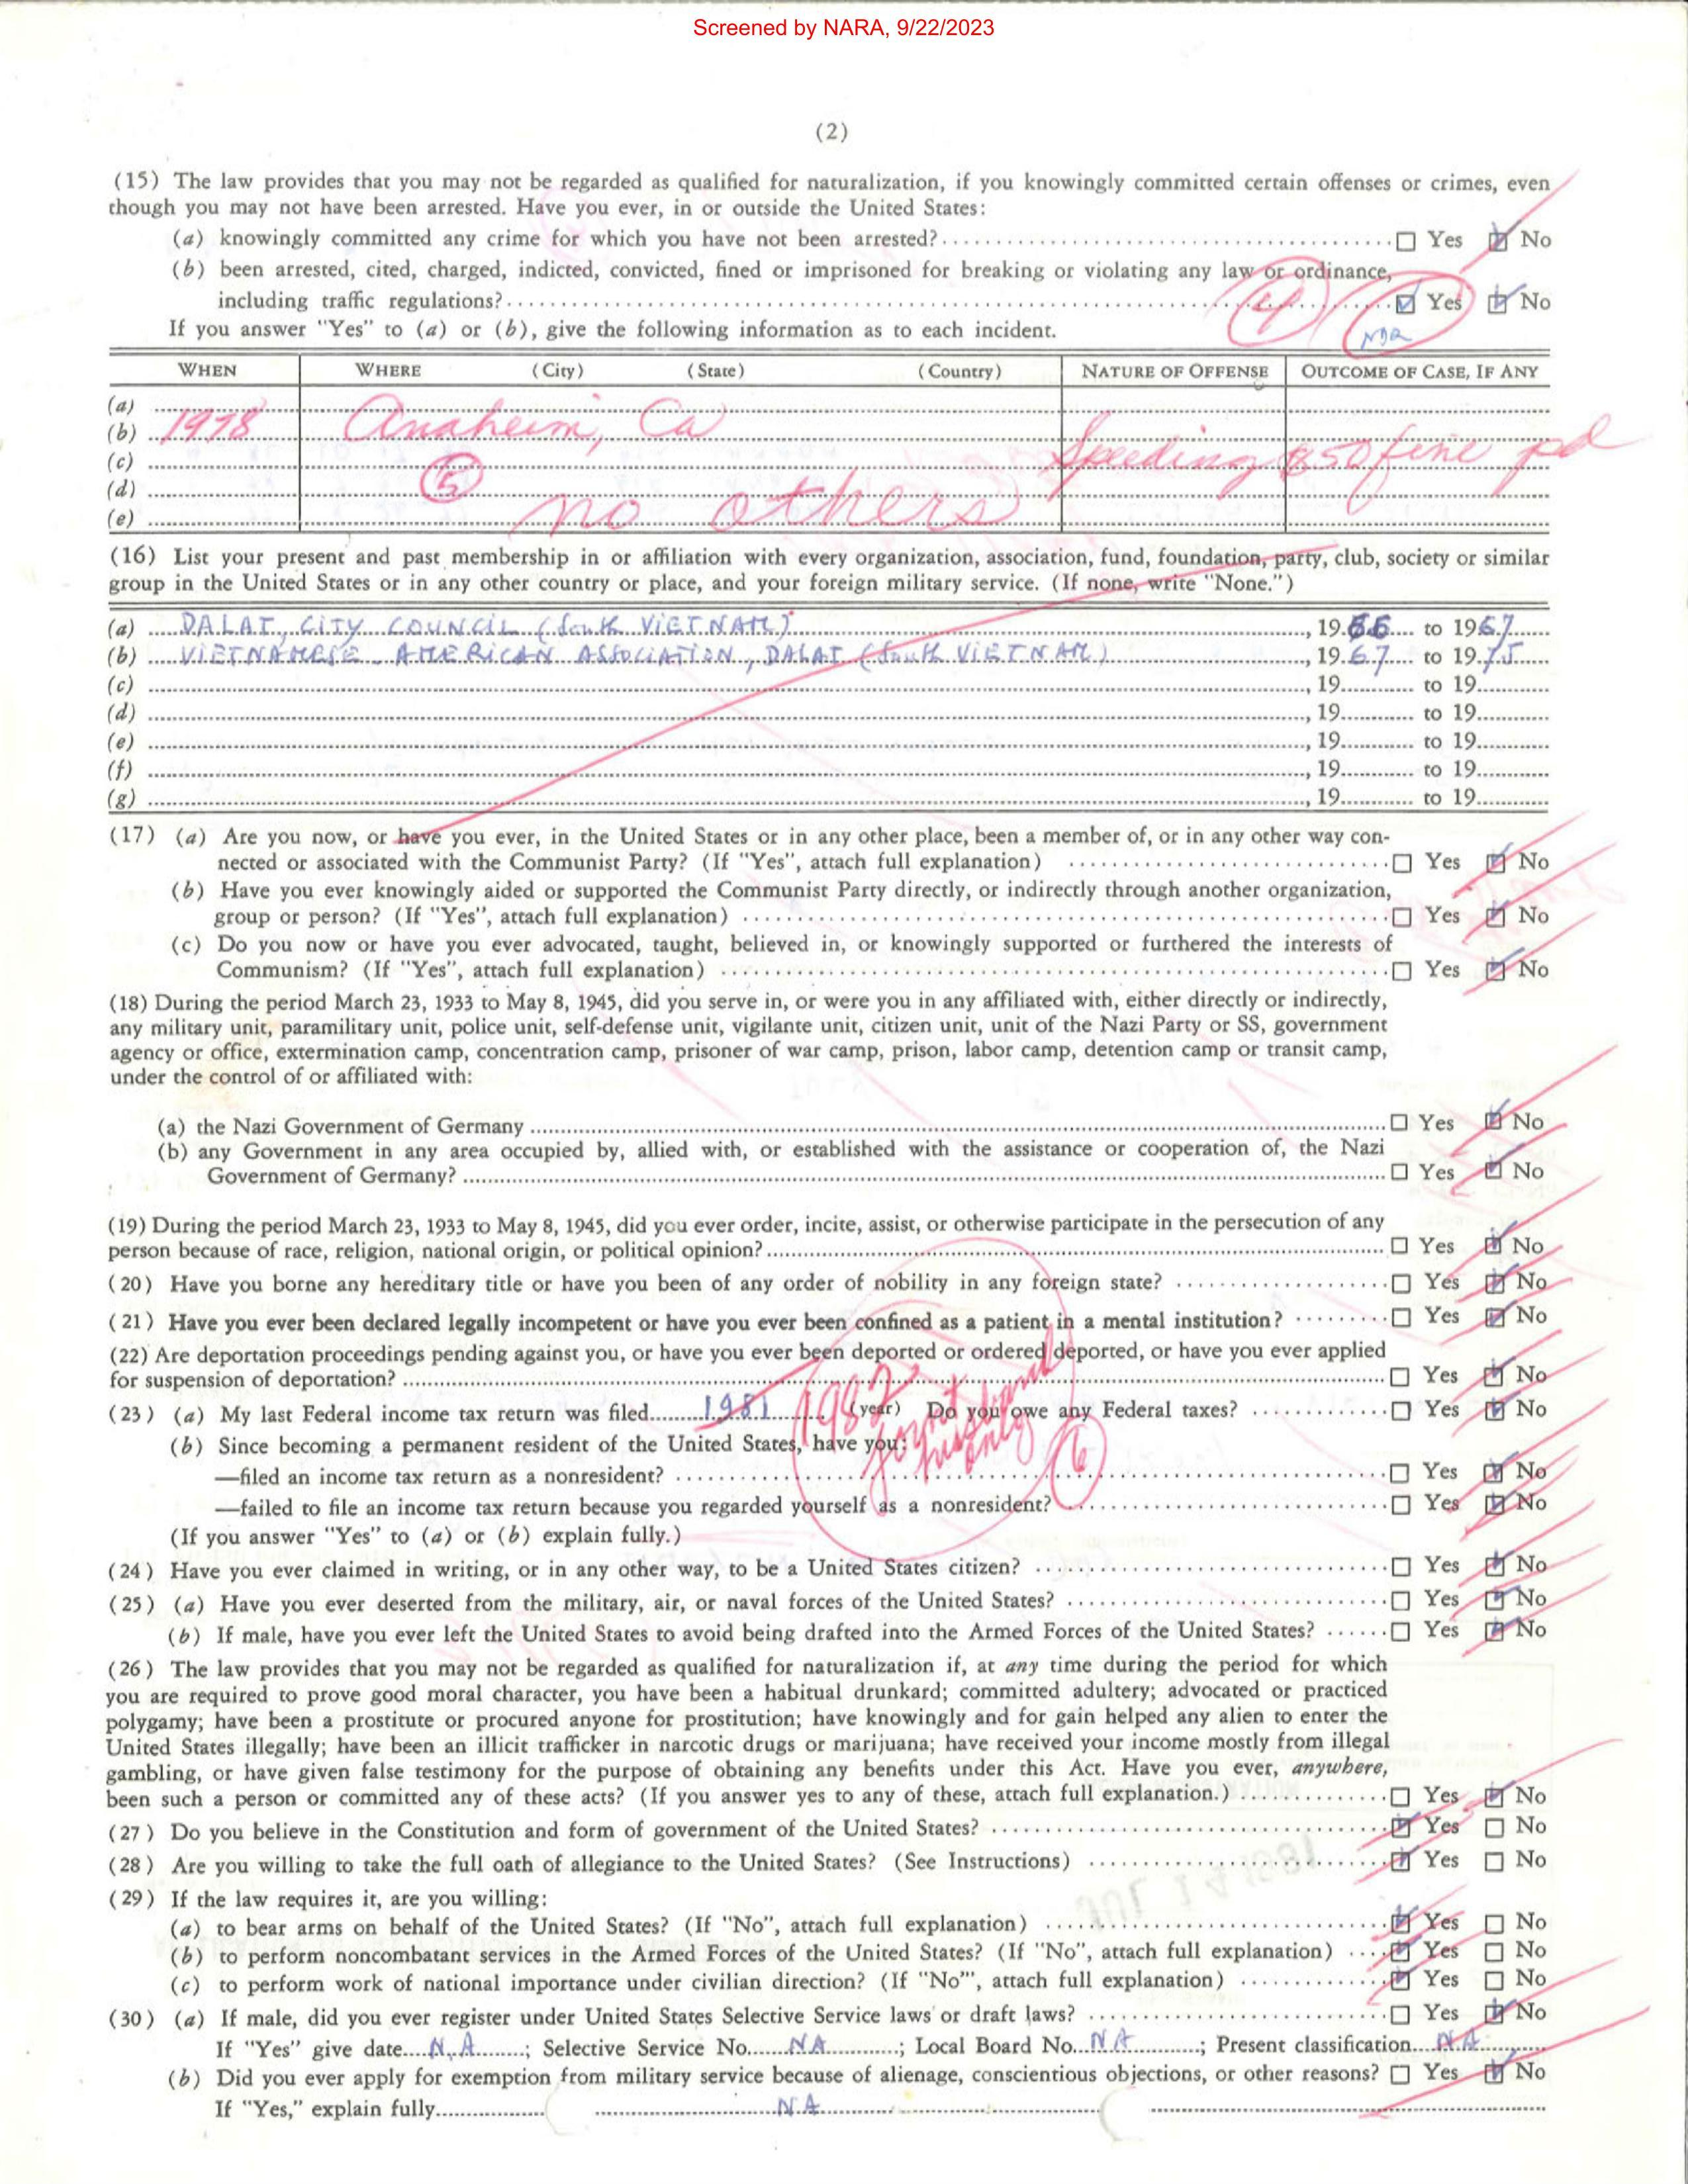 Screened by NARA, 9/22/2023
(2)
(15) The law provides that you may not be regarded as qualified for naturalization, if you knowingly committed certain offenses or crimes, even
though you may not have been arrested. Have you ever, in or outside the United States:
(a) knowingly committed any crime for which you have not been arrested? ☐ Yes ☑ No
(b) been arrested, cited, charged, indicted, convicted, fined or imprisoned for breaking or violating any law or ordinance,
including traffic regulations? (4) ☑ Yes ☑ No
If you answer "Yes" to (a) or (b), give the following information as to each incident.
WHEN WHERE (City) (State) (Country) NATURE OF OFFENSE OUTCOME OF CASE, IF ANY
(a)
(b) 1978 Anaheim, Ca Speeding $50 fine pd
(c)
(d) (5)
(e) no others
(16) List your present and past membership in or affiliation with every organization, association, fund, foundation, party, club, society or similar
group in the United States or in any other country or place, and your foreign military service. (If none, write "None.")
(a) DALAT, CITY COUNCIL (South VIETNAM), 1966 to 1967
(b) VIETNAMESE. AMERICAN ASSOCIATION, DALAT (South VIETNAM), 1967 to 1975
(c), 19 to 19
(d), 19 to 19
(e), 19 to 19
(f), 19 to 19
(g), 19 to 19
(17) (a) Are you now, or have you ever, in the United States or in any other place, been a member of, or in any other way con-
nected or associated with the Communist Party? (If "Yes", attach full explanation) ☐ Yes ☑ No
(b) Have you ever knowingly aided or supported the Communist Party directly, or indirectly through another organization,
group or person? (If "Yes", attach full explanation) ☐ Yes ☑ No
(c) Do you now or have you ever advocated, taught, believed in, or knowingly supported or furthered the interests of
Communism? (If "Yes", attach full explanation) ☐ Yes ☑ No
(18) During the period March 23, 1933 to May 8, 1945, did you serve in, or were you in any affiliated with, either directly or indirectly,
any military unit, paramilitary unit, police unit, self-defense unit, vigilante unit, citizen unit, unit of the Nazi Party or SS, government
agency or office, extermination camp, concentration camp, prisoner of war camp, prison, labor camp, detention camp or transit camp,
under the control of or affiliated with:
(a) the Nazi Government of Germany ☐ Yes ☑ No
(b) any Government in any area occupied by, allied with, or established with the assistance or cooperation of, the Nazi
Government of Germany? ☐ Yes ☑ No
(19) During the period March 23, 1933 to May 8, 1945, did you ever order, incite, assist, or otherwise participate in the persecution of any
person because of race, religion, national origin, or political opinion? ☐ Yes ☑ No
(20) Have you borne any hereditary title or have you been of any order of nobility in any foreign state? ☐ Yes ☑ No
(21) Have you ever been declared legally incompetent or have you ever been confined as a patient in a mental institution? ☐ Yes ☑ No
(22) Are deportation proceedings pending against you, or have you ever been deported or ordered deported, or have you ever applied
for suspension of deportation? ☐ Yes ☑ No
(23) (a) My last Federal income tax return was filed 1981 1982 (year) Do you owe any Federal taxes? ☐ Yes ☑ No
joint husband only (6)
(b) Since becoming a permanent resident of the United States, have you:
—filed an income tax return as a nonresident? ☐ Yes ☑ No
—failed to file an income tax return because you regarded yourself as a nonresident? ☐ Yes ☑ No
(If you answer "Yes" to (a) or (b) explain fully.)
(24) Have you ever claimed in writing, or in any other way, to be a United States citizen? ☐ Yes ☑ No
(25) (a) Have you ever deserted from the military, air, or naval forces of the United States? ☐ Yes ☑ No
(b) If male, have you ever left the United States to avoid being drafted into the Armed Forces of the United States? ☐ Yes ☑ No
(26) The law provides that you may not be regarded as qualified for naturalization if, at any time during the period for which
you are required to prove good moral character, you have been a habitual drunkard; committed adultery; advocated or practiced
polygamy; have been a prostitute or procured anyone for prostitution; have knowingly and for gain helped any alien to enter the
United States illegally; have been an illicit trafficker in narcotic drugs or marijuana; have received your income mostly from illegal
gambling, or have given false testimony for the purpose of obtaining any benefits under this Act. Have you ever, anywhere,
been such a person or committed any of these acts? (If you answer yes to any of these, attach full explanation.) ☐ Yes ☑ No
(27) Do you believe in the Constitution and form of government of the United States? ☑ Yes ☐ No
(28) Are you willing to take the full oath of allegiance to the United States? (See Instructions) ☑ Yes ☐ No
(29) If the law requires it, are you willing:
(a) to bear arms on behalf of the United States? (If "No", attach full explanation) ☑ Yes ☐ No
(b) to perform noncombatant services in the Armed Forces of the United States? (If "No", attach full explanation) ☑ Yes ☐ No
(c) to perform work of national importance under civilian direction? (If "No"', attach full explanation) ☑ Yes ☐ No
(30) (a) If male, did you ever register under United States Selective Service laws or draft laws? ☐ Yes ☑ No
If "Yes" give date N.A; Selective Service No. NA; Local Board No. NA; Present classification N.A
(b) Did you ever apply for exemption from military service because of alienage, conscientious objections, or other reasons? ☐ Yes ☑ No
If "Yes," explain fully NA